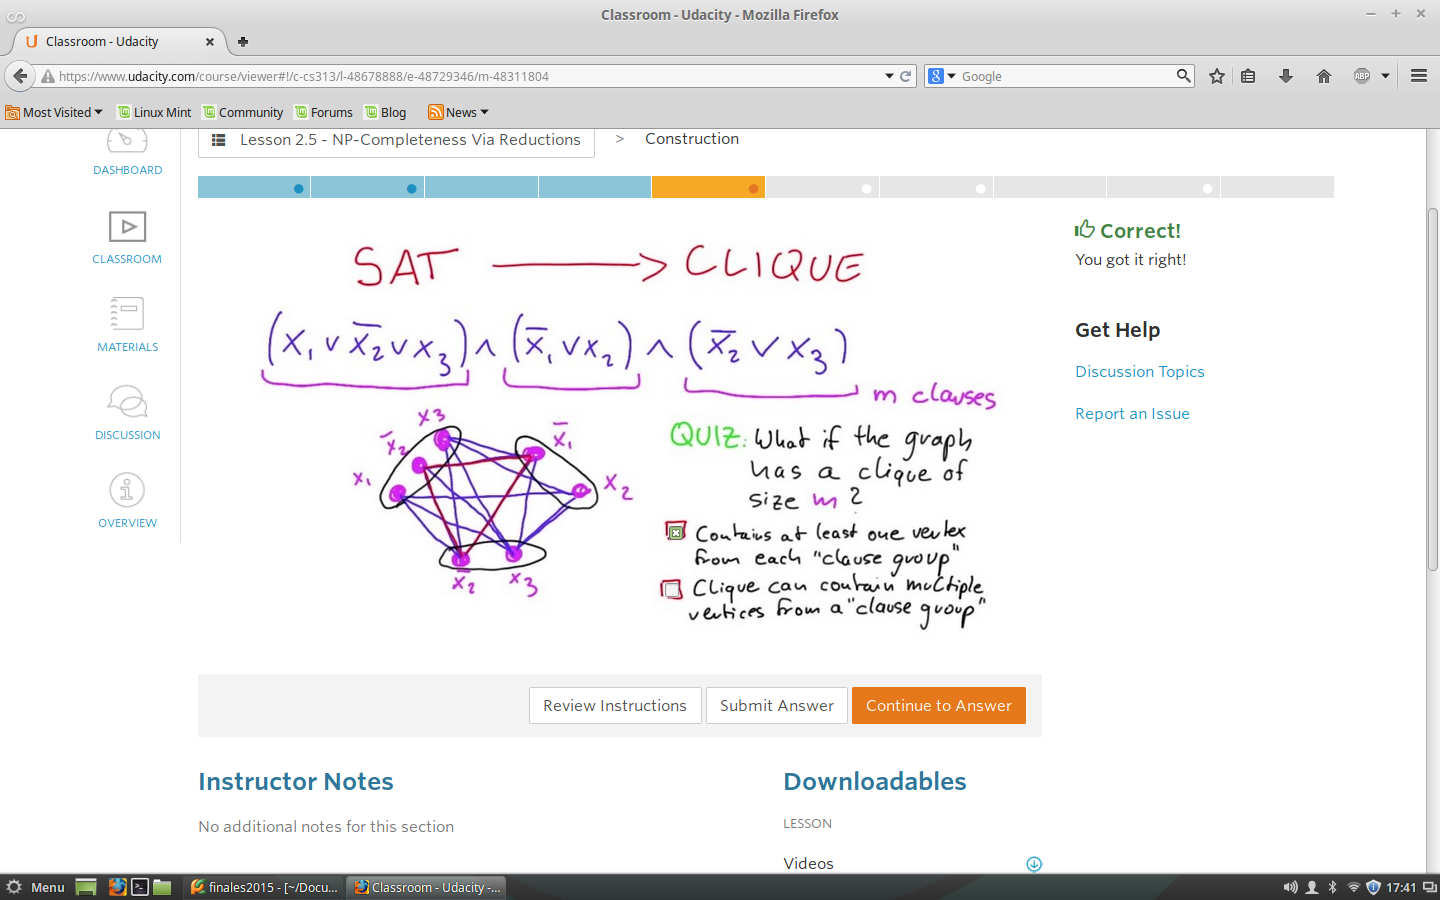 Classroom - Udacity - Mozilla Firefox
Classroom - Udacity
https://www.udacity.com/course/viewer#!/c-cs313/l-48678888/e-48729346/m-48311804
Google
ABP
Most Visited Linux Mint Community Forums Blog News
Lesson 2.5 - NP-Completeness Via Reductions > Construction
DASHBOARD
CLASSROOM
MATERIALS
DISCUSSION
OVERVIEW
SAT → CLIQUE
(x₁ ∨ x̅₂ ∨ x₃) ∧ (x̅₁ ∨ x₂) ∧ (x̅₂ ∨ x₃)
m clauses
x₃
x̅₂
x₁
x̅₁
x₂
x̅₂
x₃
QUIZ: What if the graph
has a clique of
size m?
Contains at least one vertex
from each "clause group"
Clique can contain multiple
vertices from a "clause group"
Correct!
You got it right!
Get Help
Discussion Topics
Report an Issue
Review Instructions Submit Answer Continue to Answer
Instructor Notes
No additional notes for this section
Downloadables
LESSON
Videos
Menu finales2015 - [~/Docu... Classroom - Udacity -... 17:41